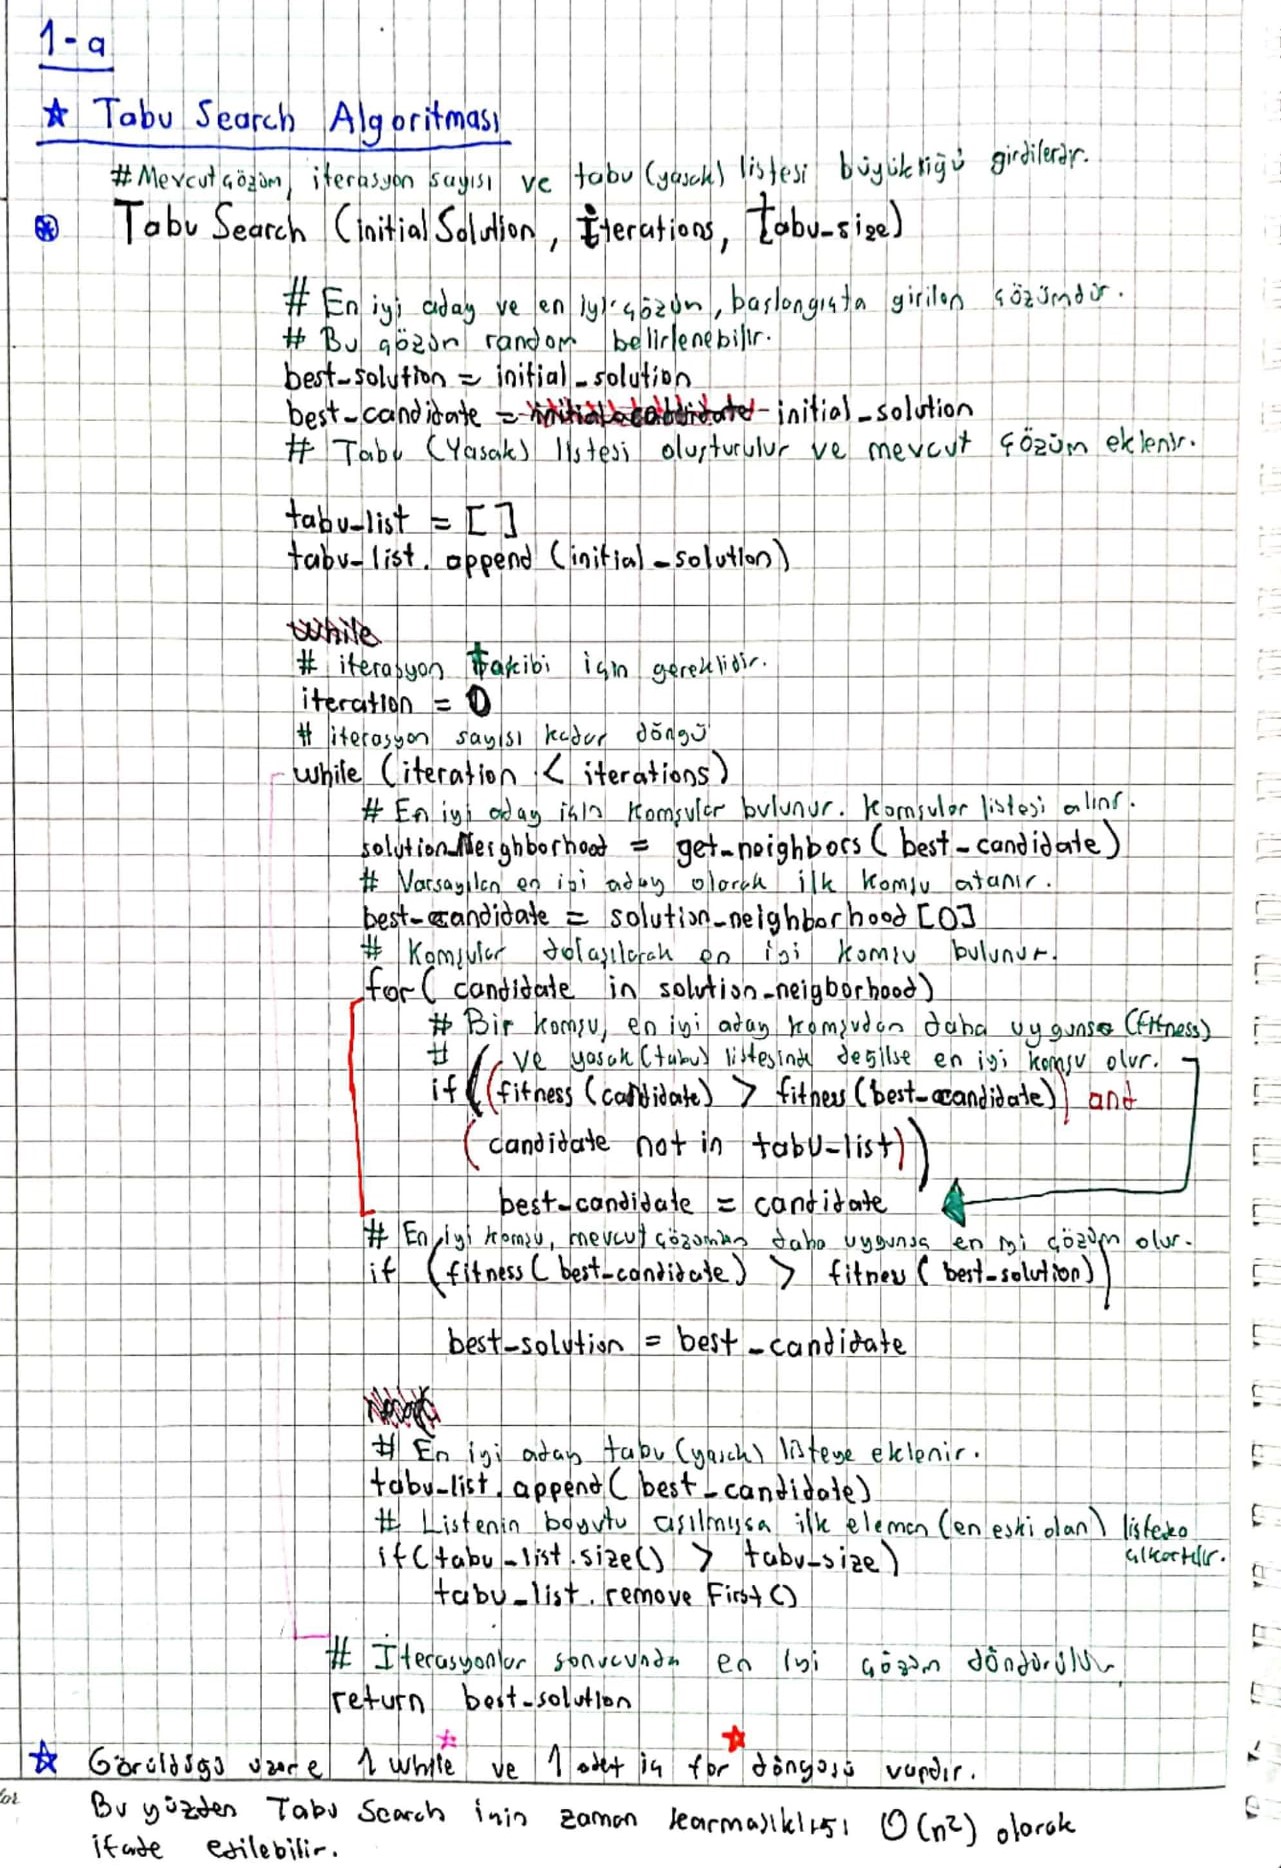 1-a
☆ Tabu Search Algoritması
#Mevcut çözüm, iterasyon sayısı ve tabu (yasak) listesi büyüklüğü girdilerdir.
Tabu Search (initial Solution, iterations, tabu-size)
# En iyi aday ve en iyi çözüm, başlangıçta girilen çözümdür.
# Bu çözüm random belirlenebilir.
best-solution = initial-solution
best-candidate = initial-solution
# Tabu (Yasak) listesi oluşturulur ve mevcut çözüm eklenir.
tabu-list = []
tabu-list.append(initial-solution)
while
# iterasyon takibi için gereklidir.
iteration = 0
# iterasyon sayısı kadar döngü
while (iteration < iterations)
# En iyi aday için komşular bulunur. Komşular listesi alınır.
solution_Neighborhood = get-neighbors (best-candidate)
# Varsayılan en iyi aday olarak ilk komşu atanır.
best-candidate = solution-neighborhood [0]
# Komşular dolaşılarak en iyi komşu bulunur.
for( candidate in solution-neigborhood)
# Bir komşu, en iyi aday komşudan daha uygunsa (fitness)
# ve yasak (tabu) listesinde değilse en iyi komşu olur.
if((fitness (candidate) > fitness (best-candidate)) and
(candidate not in tabu-list))
best-candidate = candidate
# En iyi komşu, mevcut çözümden daha uygunsa en iyi çözüm olur.
if (fitness ( best-candidate) > fitness ( best-solution))
best-solution = best-candidate
# En iyi aday tabu (yasak) listeye eklenir.
tabu-list.append( best-candidate)
# Listenin boyutu aşılmışsa ilk eleman (en eski olan) listeden
çıkartılır.
if(tabu-list.size() > tabu-size)
tabu-list.remove First()
# İterasyonlar sonucunda en iyi çözüm döndürülür
return best-solution
☆ Görüldüğü üzere 1 while ve 1 adet iç for döngüsü vardır.
Bu yüzden Tabu Search için zaman karmaşıklığı O(n²) olarak
ifade edilebilir.